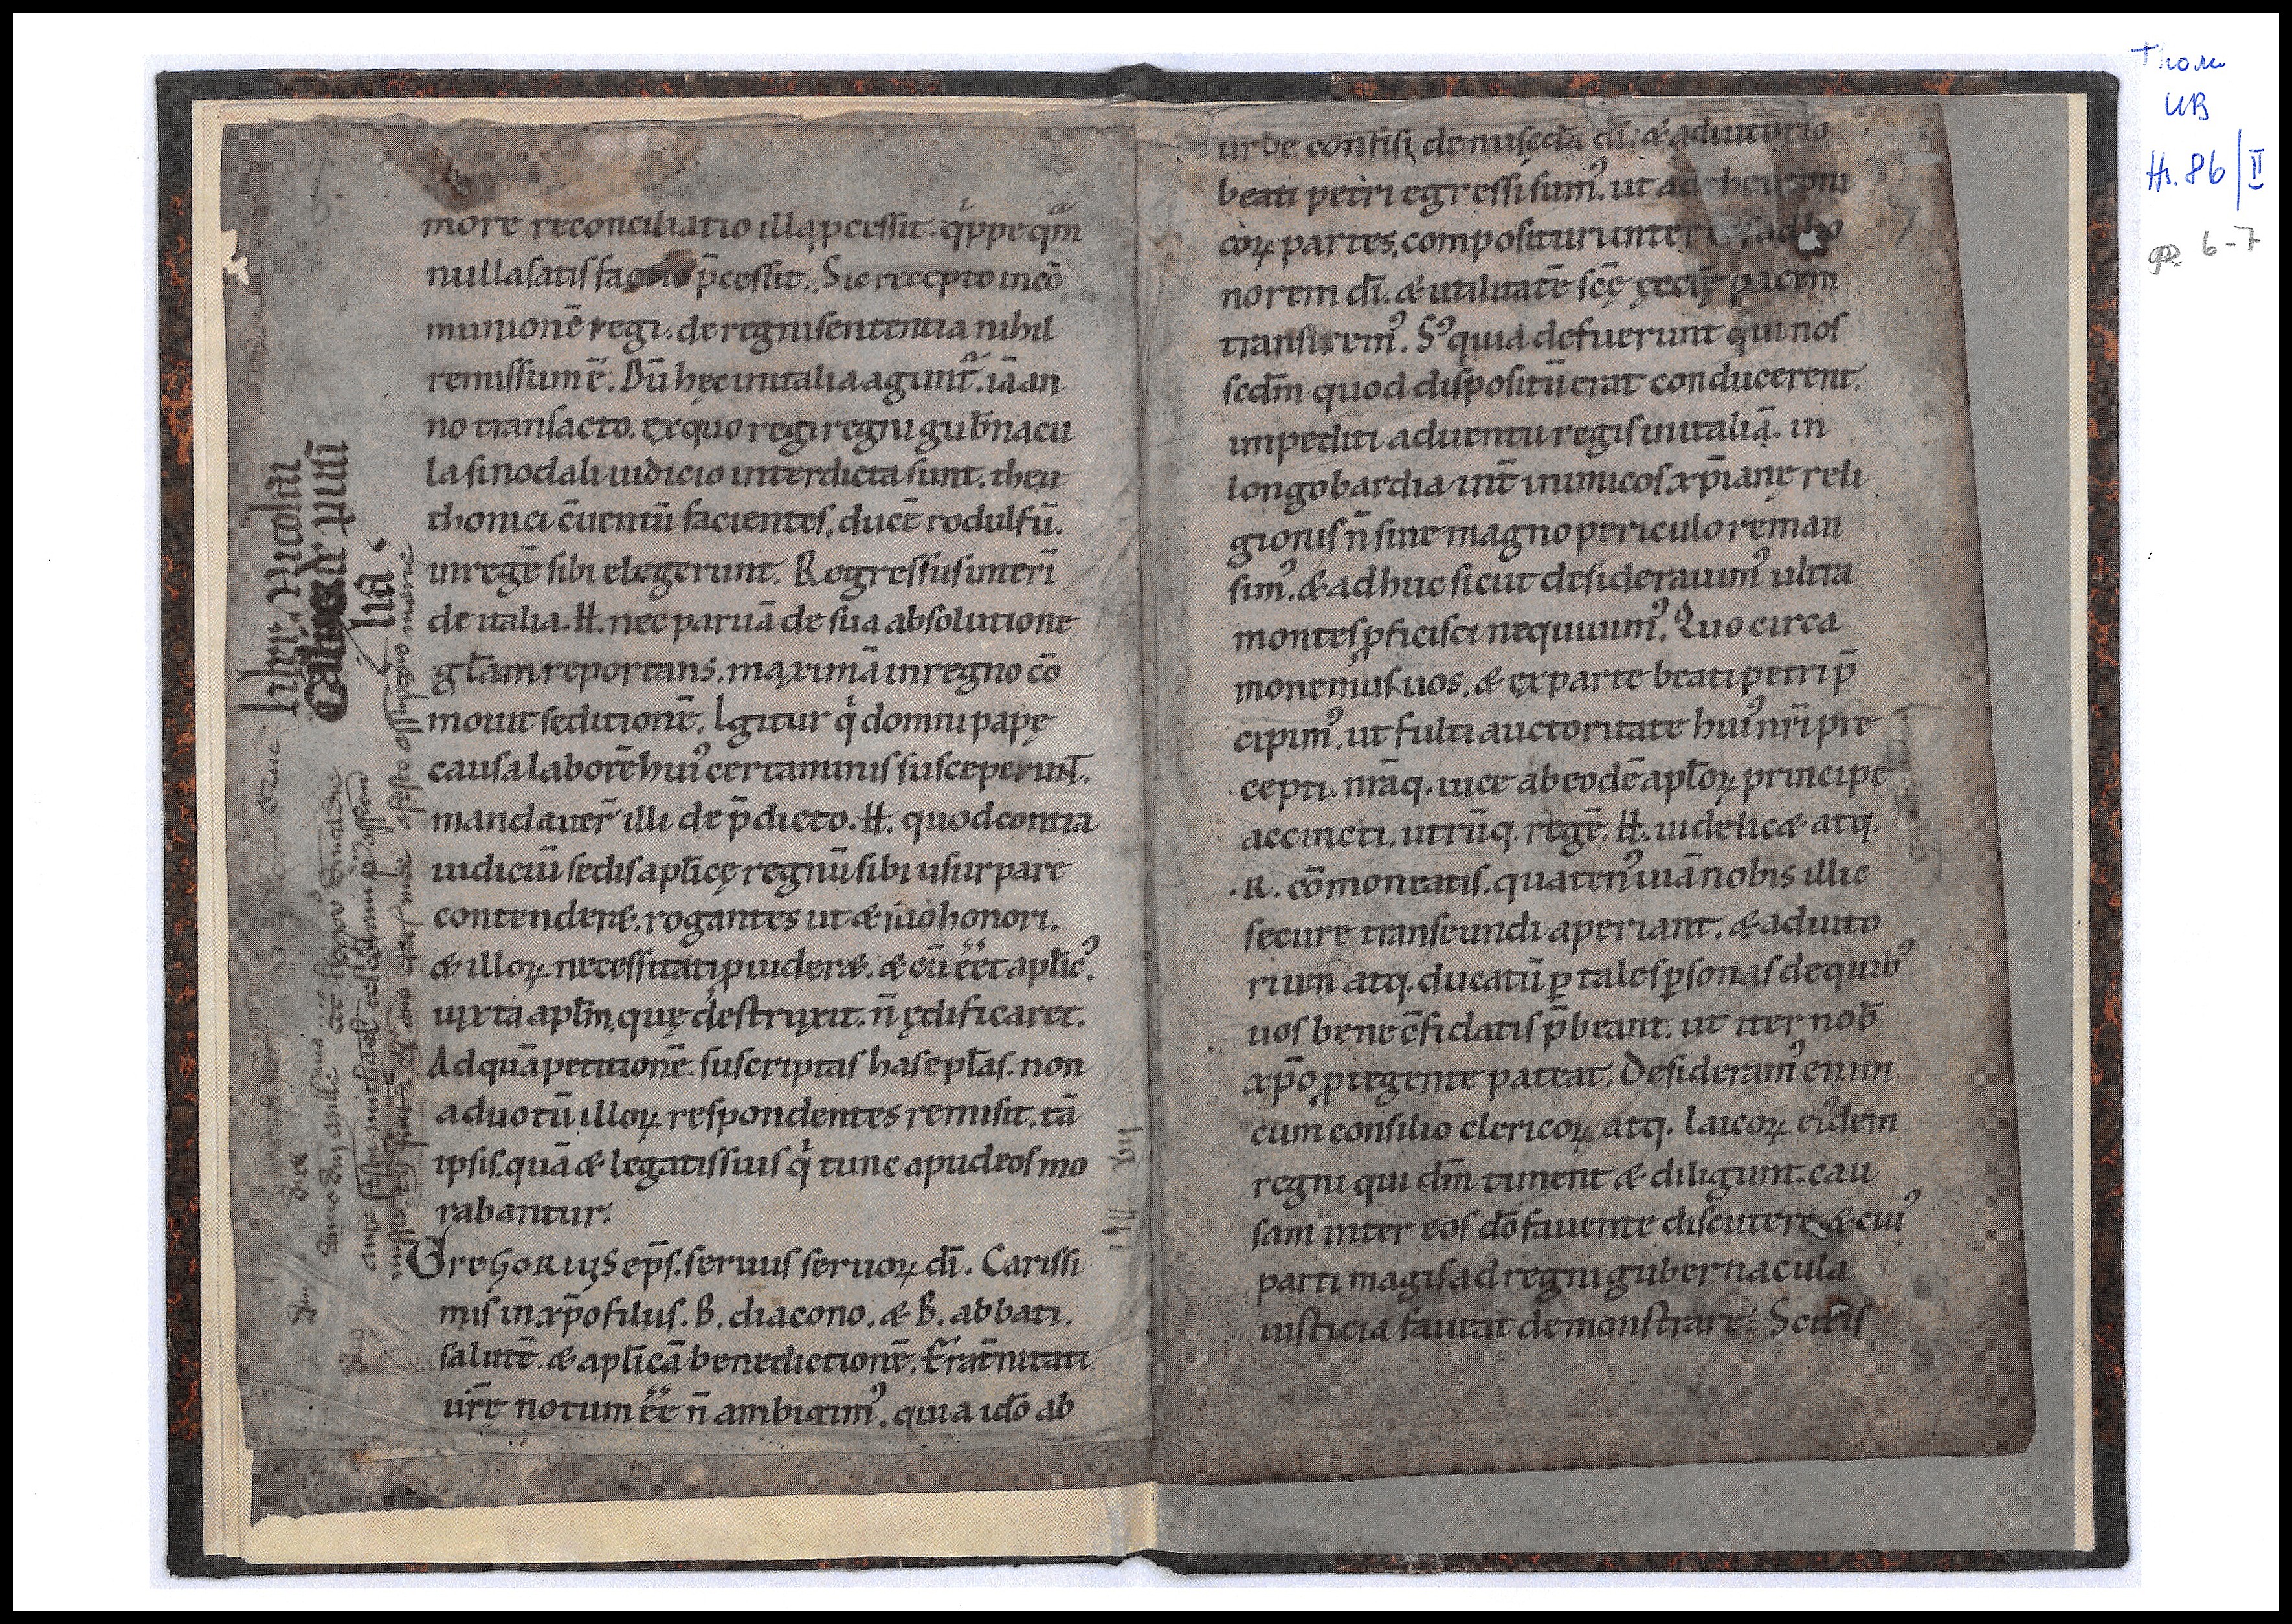 more reconciliatio illa ꝓcessit. qͥppe qͣm
nulla satis factio p̄cessit. Sic recepto in cō
munionē regi. de regni sententia nihil
remissum ē. Dū hęc in italia agunt᷑. iā an
no transacto. ex quo regi regni gub̄nacu
la sinodali iudicio interdicta sunt. theu
thonici cuentū facientes. ducē rodulfū.
in regē sibi elegerunt. Regressus interī
de italia. H. nec paruā de sua absolutione
gl̄am reportans. maximā in regno cō
mouit seditionē. Igitur qͥ domni papę
causa laborē huiꝰ certaminis susceperunt.
mandauer̄ illi de p̄dicto. H. quod contra
iudiciū sedis apl̄icę regnū sibi usurpare
contenderæ. rogantes ut æ suo honori.
æ illoꝝ necessitati ꝓuideræ. æ cū ēēt apl̄icꝰ.
iuxta apl̄m, quę destruxit. n̄ ędificaret.
Ad quā petitionē. suscriptas has epl̄as. non
ad uotū illoꝝ respondentes remisit. tā
ipsis. quā æ legatis suis qͥ tunc apud eos mo
rabantur.
GregoRius ep̄s. seruus seruoꝝ dī. Carissi
mis in xp̄o filiis. B. diacono. æ B. abbati.
salutē æ apl̄icā benedictionē. Frat̄nitati
ur̄ę notum ēē n̄ ambigimꝰ. quia ido ab
liber Nicolai
lia
urbe confisi de mis̄cd̄a dī. æ adiutorio
beati petri egressi sumꝰ. ut ad
coꝝ partes, composituri inter
norem dī. æ utilitatē scē ęcclę pacem
transiremꝰ. Sꝰ quia defuerunt qui nos
scdm̄ quod dispositū erat conducerent.
impediti aduentu regis in italiā. in
longobardia int̄ inimicos xp̄ianę reli
gionis n̄ sine magno periculo reman
simꝰ. æ adhuc sicut desiderauimꝰ ultra
montes ꝓficisci nequiuimꝰ. Quo circa
monemus uos. æ ex parte beati petri p̄
cipimꝰ. ut fulti auctoritate huiꝰ nr̄i pre
cepti. nr̄aq. uice ab eodē apl̄oꝝ principe
accincti. utrūq. regē. H. uidelicæ atq.
.R. cōmoneatis. quatenꝰ uiā nobis illic
secure transeundi aperiant. æ adiuto
rium atq. ducatū ꝑ tales ꝑsonas de quibꝰ
uos bene c̄fidatis p̄beant. ut iter nob̄
xp̄o ꝓtegente pateat. Desideramꝰ enim
cum consilio clericoꝝ atq. laicoꝝ eiꝰdem
regni qui dm̄ timent æ diligunt. cau
sam inter eos dō fauente discutere. æ cuiꝰ
parti magis ad regni gubernacula
iusticia faueat demonstrare. Scitis
UB
Hs. 86/II
6-7
7